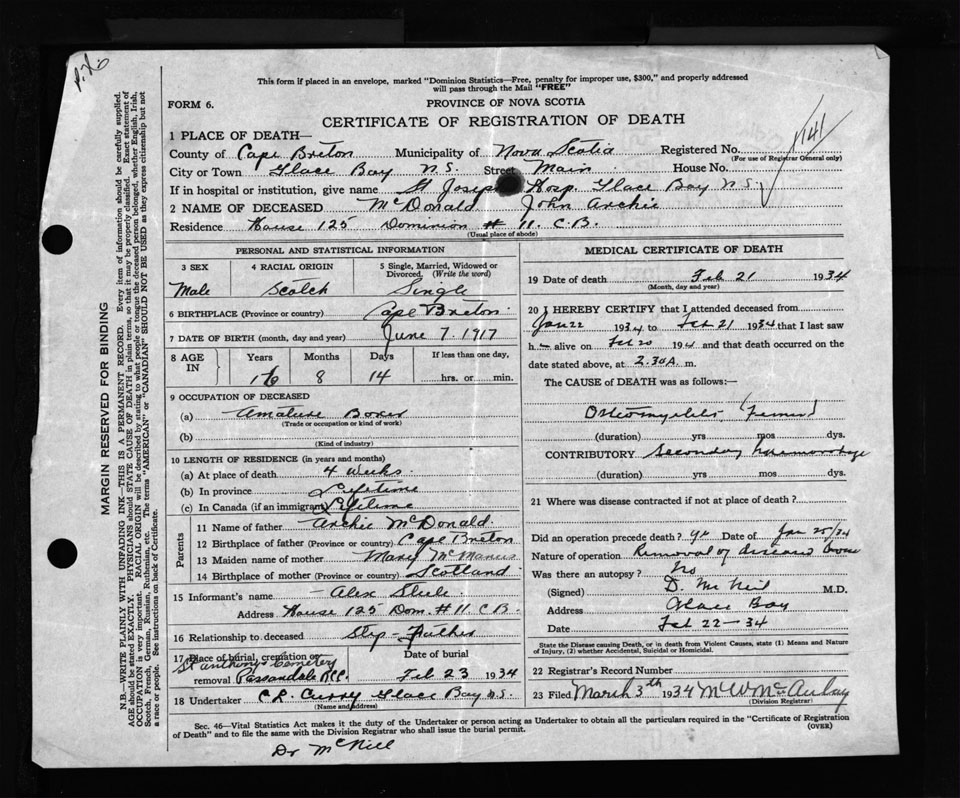 This form if placed in an envelope, marked "Dominion Statistics—Free, penalty for improper use, $300," and properly addressed
will pass through the Mail "FREE"
FORM 6.
PROVINCE OF NOVA SCOTIA
CERTIFICATE OF REGISTRATION OF DEATH
1 PLACE OF DEATH—
County of Cape Breton Municipality of Nova Scotia Registered No. 1141
(For use of Registrar General only)
City or Town Glace Bay N.S. Street Main House No.
If in hospital or institution, give name St Joseph Hosp. Glace Bay N.S.
2 NAME OF DECEASED McDonald John Archie
Residence House 125 Dominion # 11. C.B.
(Usual place of abode)
PERSONAL AND STATISTICAL INFORMATION
3 SEX 4 RACIAL ORIGIN 5 Single, Married, Widowed or
Divorced, (Write the word)
Male Scotch Single
6 BIRTHPLACE (Province or country) Cape Breton
7 DATE OF BIRTH (month, day and year) June 7. 1917
8 AGE IN Years Months Days If less than one day,
16 8 14 hrs. or min.
9 OCCUPATION OF DECEASED
(a) Amature Boxer
(Trade or occupation or kind of work)
(b)
(Kind of industry)
10 LENGTH OF RESIDENCE (in years and months)
(a) At place of death 4 Weeks
(b) In province Lifetime
(c) In Canada (if an immigrant) Lifetime
Parents
11 Name of father Archie McDonald
12 Birthplace of father (Province or country) Cape Breton
13 Maiden name of mother Mary McManus
14 Birthplace of mother (Province or country) Scotland
15 Informant's name Alex
Address House 125 Dom. # 11 C.B.
16 Relationship to deceased Step-Father
17 Place of burial, cremation or
removal St Anthonys Cemetery Passandale
Date of burial
Feb 23 1934
18 Undertaker C.R. Curry Glace Bay N.S.
(Name and address)
MEDICAL CERTIFICATE OF DEATH
19 Date of death Feb 21 1934
(Month, day and year)
20 I HEREBY CERTIFY that I attended deceased from
Jan 22 1934 to Feb 21 1934 that I last saw
h alive on Feb 20 19 and that death occurred on the
date stated above, at 2.30 A. m.
The CAUSE of DEATH was as follows:—
Osteomyelitis (Femur)
(duration) yrs mos dys.
CONTRIBUTORY Secondary haemorrhage
(duration) yrs mos dys.
21 Where was disease contracted if not at place of death?
Did an operation precede death? Date of Jan
Nature of operation Removal of diseased bone
Was there an autopsy? No
(Signed) D. McNeil M.D.
Address Glace Bay
Date Feb 22-34
State the Disease causing Death, or in death from Violent Causes, state (1) Means and Nature
of Injury, (2) whether Accidental, Suicidal or Homicidal.
22 Registrar's Record Number
23 Filed March 3th 1934
(Division Registrar)
Sec. 46—Vital Statistics Act makes it the duty of the Undertaker or person acting as Undertaker to obtain all the particulars required in the "Certificate of Registration
of Death" and to file the same with the Division Registrar who shall issue the burial permit.
(OVER)
Dr McNeil
MARGIN RESERVED FOR BINDING
N.B.—WRITE PLAINLY WITH UNFADING INK—THIS IS A PERMANENT RECORD. Every item of information should be carefully supplied.
AGE should be stated EXACTLY. PHYSICIANS should STATE CAUSE OF DEATH in plain terms, so that it may be properly classified. Exact statement of
OCCUPATION is very important. RACIAL ORIGIN will be described by stating to what people or tongue the deceased person belonged, whether English, Irish,
Scotch, French, German, Russian, Ruthenian, etc. The terms "AMERICAN" or "CANADIAN" SHOULD NOT BE USED as they express citizenship but not
a race or people. See instructions on back of Certificate.